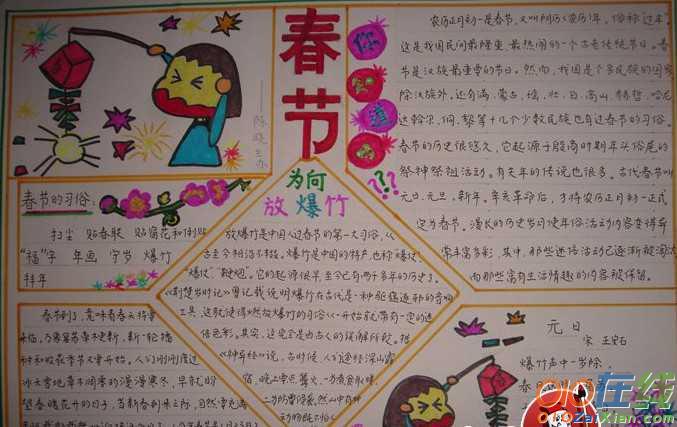 春节
你
道
???
陈晓兰办
农历正月初一是春节，又叫阴历(农历)年，俗称"过年"。
这是我国民间最隆重、最热闹的一个古老传统节日。春
节是汉族最重要的节日。然而，我国是个多民族的国家
除汉族外，还有满、蒙古、瑶、壮、白、高山、赫哲、哈尼
达斡尔、侗、黎等十几个少数民族也有过春节的习俗。
春节的历史很悠久，它起源于殷商时期年头岁尾的
祭神祭祖活动。有关年的传说也很多。古代春节叫
元日、元旦、新年。辛亥革命后，才将农历正月初一正式
定为春节。漫长的历史岁月使年俗活动内容变得异
常丰富多彩，其中，那些迷信活动已逐渐被淘汰
而那些富有生活情趣的内容被保留。
春节的习俗:
扫尘 贴春联 贴窗花和倒贴
"福"字 年画 守岁 爆竹
拜年
为何
放爆竹
放爆竹是中国人过春节的第一大习俗，从
古至今相沿不移。爆竹是中国的特产，也称"爆仗"、
"炮仗"、"鞭炮"。它的起源很早，至今已有两千多年的历史了。
《荆楚岁时记》曾记载说明爆竹在古代是一种驱瘟逐邪的音响
工具，这就使得燃放爆竹的习俗从一开始就带有一定的迷
信色彩。其实，这完全是由古人的误解所致。据
《神异经》说，古时候，人们途经深山露
宿，晚上要点篝火，一为煮食取暖、
二为防野兽侵袭。然山中有种
动物既不怕人
春节到了，意味着春天将要
来临，万象复苏草木更新，新一轮播
种和收获季节又要开始。人们刚刚度过
冰天雪地草木凋零的漫漫寒冬，早就盼
望春暖花开的日子，当新春到来之际，自然要充满
元日
宋 王安石
爆竹声中一岁除，
春
QQ在线
QQZaiXian.com